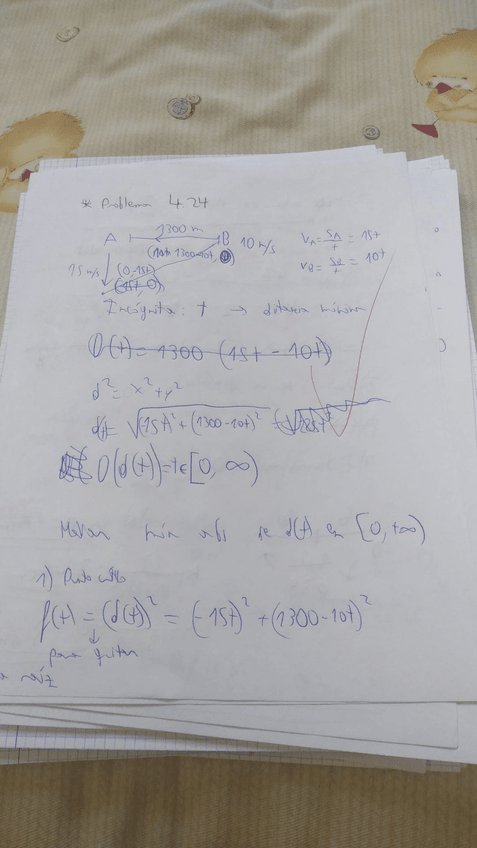 * Problema 4.24
1300 m
A B 10 m/s
(1300-10t, 0)
15 m/s (0,-15t)
(15t, 0)
V_A = S_A/t = 15t
V_B = S_B/t = 10t
Incógnita: t → distancia mínima
D(t) = 1300 (15t - 10t)
d² = x² + y²
d(t) = √((-15t)² + (1300-10t)²)
D(d(t)) = t ∈ [0, ∞)
min abs de d(t) en [0, +∞)
1) Punto crítico
f(t) = (d(t))² = (-15t)² + (1300-10t)²
↓
para quitar
raíz